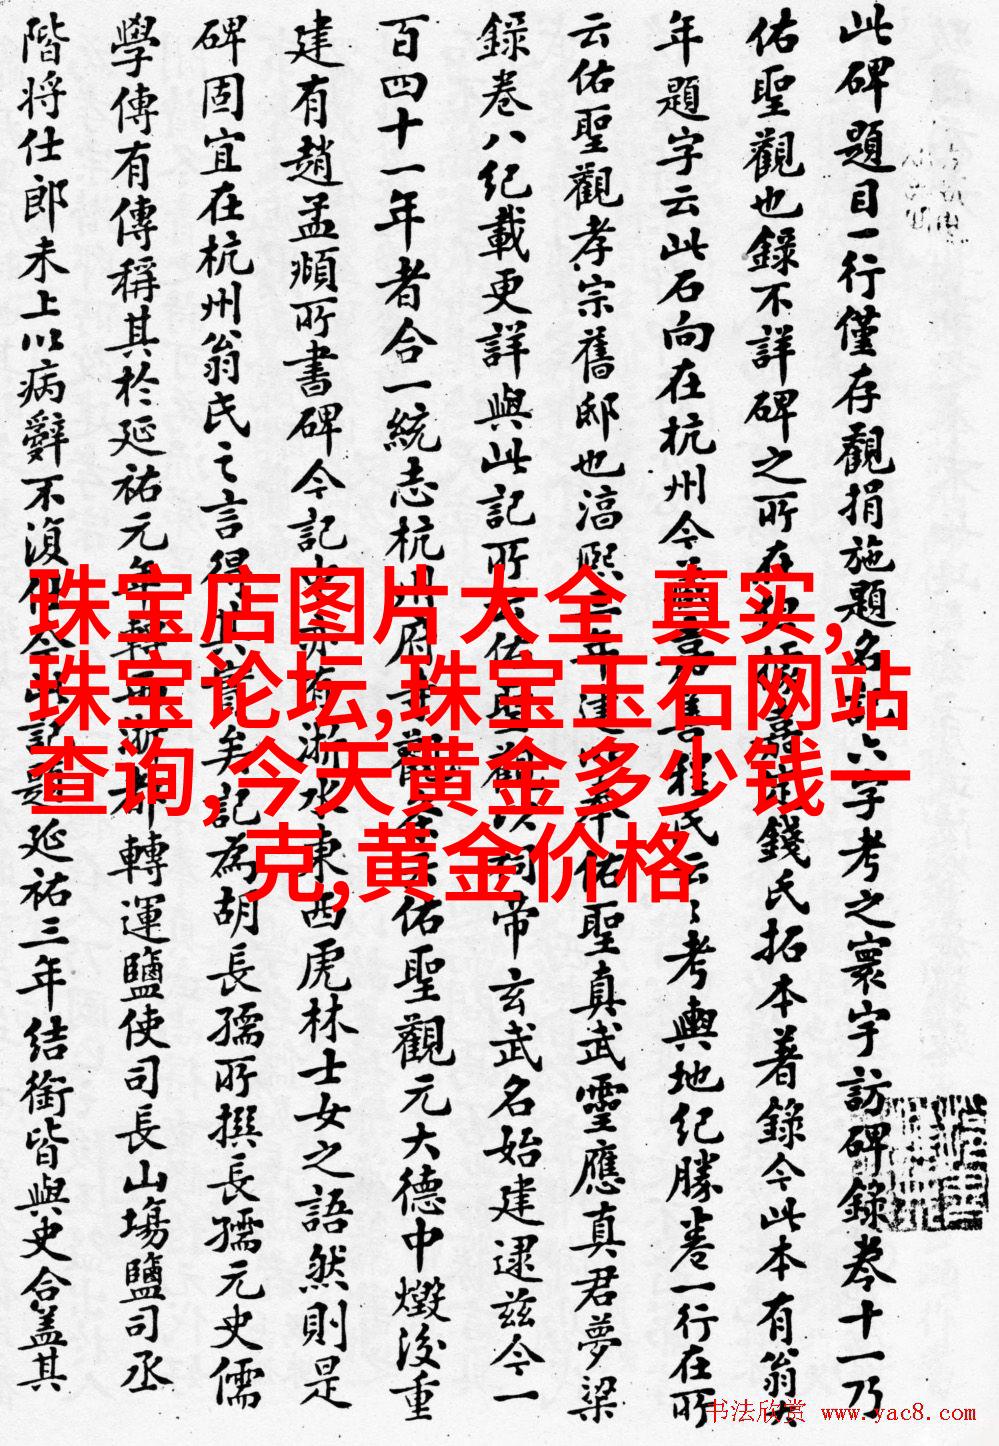 此碑題目一行僅存觀捐施題名記六字考之寰宇訪碑錄卷十一乃
佑聖觀也錄不詳碑之所在錢氏拓本著錄今此本有翁大
年題字云此石向在杭州今氏云〻考輿地紀勝卷一行在所
云佑聖觀孝宗舊邸也淳熙三年建以奉佑聖真武靈應真君夢梁
錄卷八紀載更詳與此記所云佑聖觀以祠帝玄武名始建逮茲今一
百四十一年者合一統志杭州府寺觀云佑聖觀元大德中燬後重
建有趙孟頫所書碑今記中亦有浙水東西虎林士女之語然則是
碑固宜在杭州翁氏之言得其實矣記為胡長孺所撰長孺元史儒
學傳有傳稱其於延祐元年轉兩浙都轉運鹽使司長山場鹽司丞
階將仕郎未上以病辭不湏仕今此記題延祐三年結銜皆與史合蓋其
珠宝店图片大全 真实,
珠宝论坛,珠宝玉石网站
查询,今天黄金多少钱一
克,黄金价格
书法欣赏 www.yac8.com